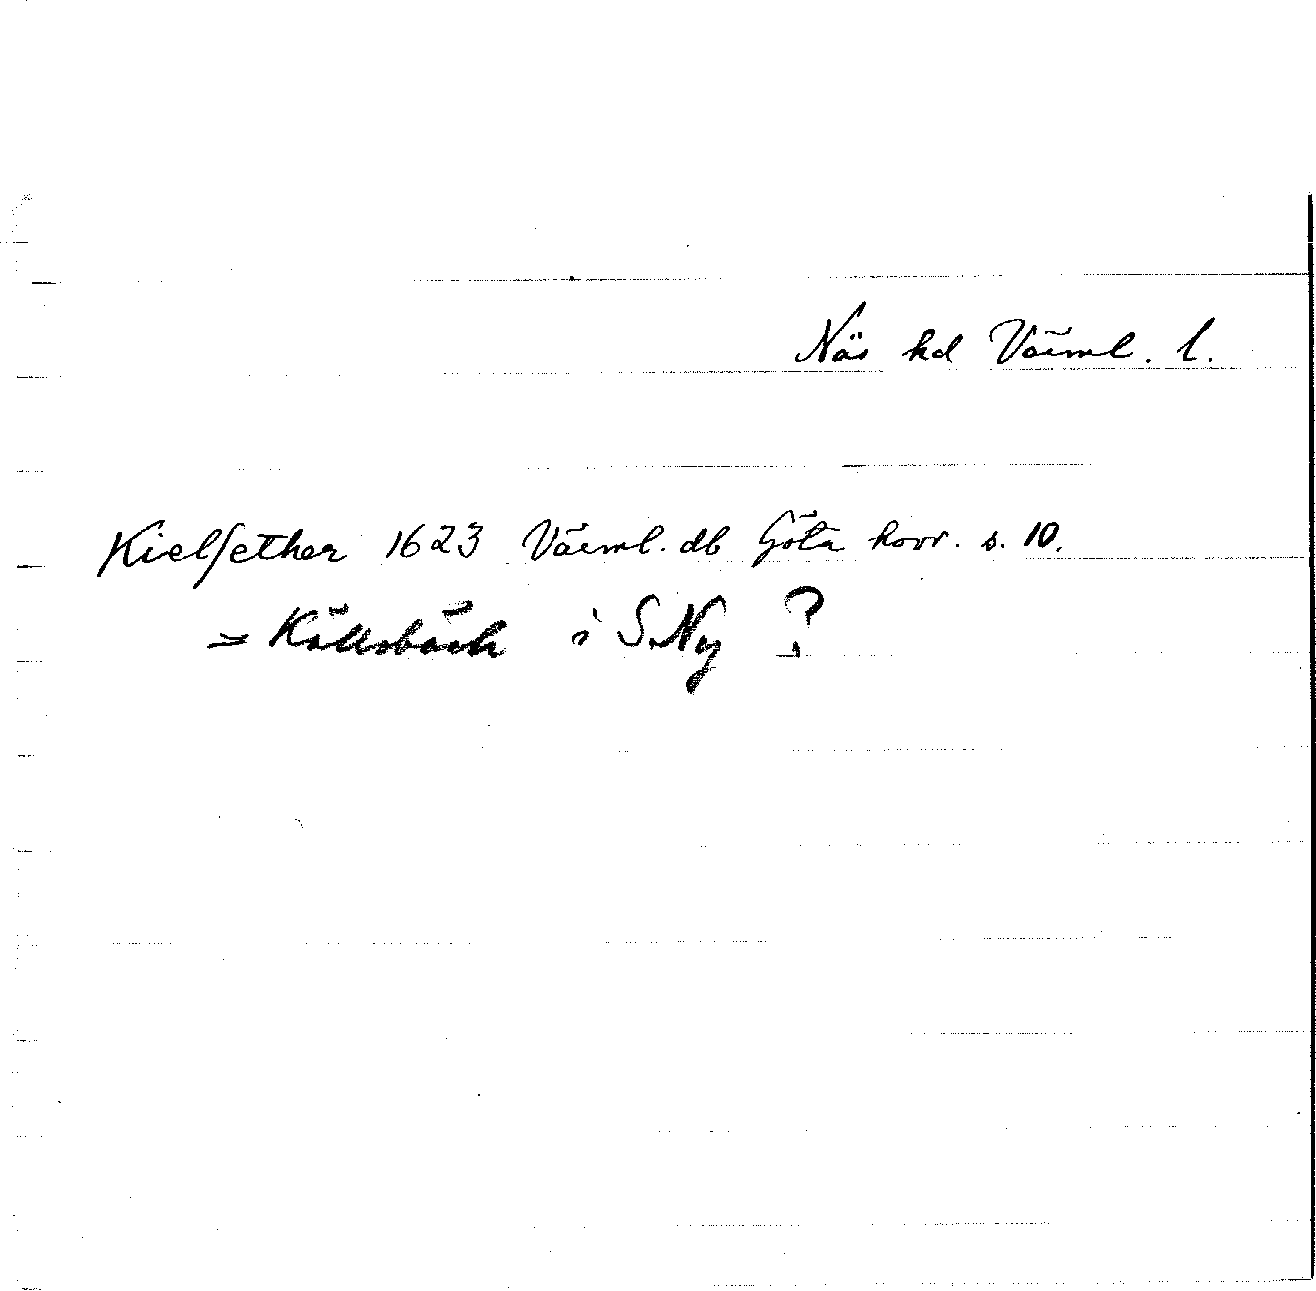 Näs hd Värml. l.
Kielsether 1623 Värml. db Göta hovr. s. 10.
= Källsbäck i S. Ny ?